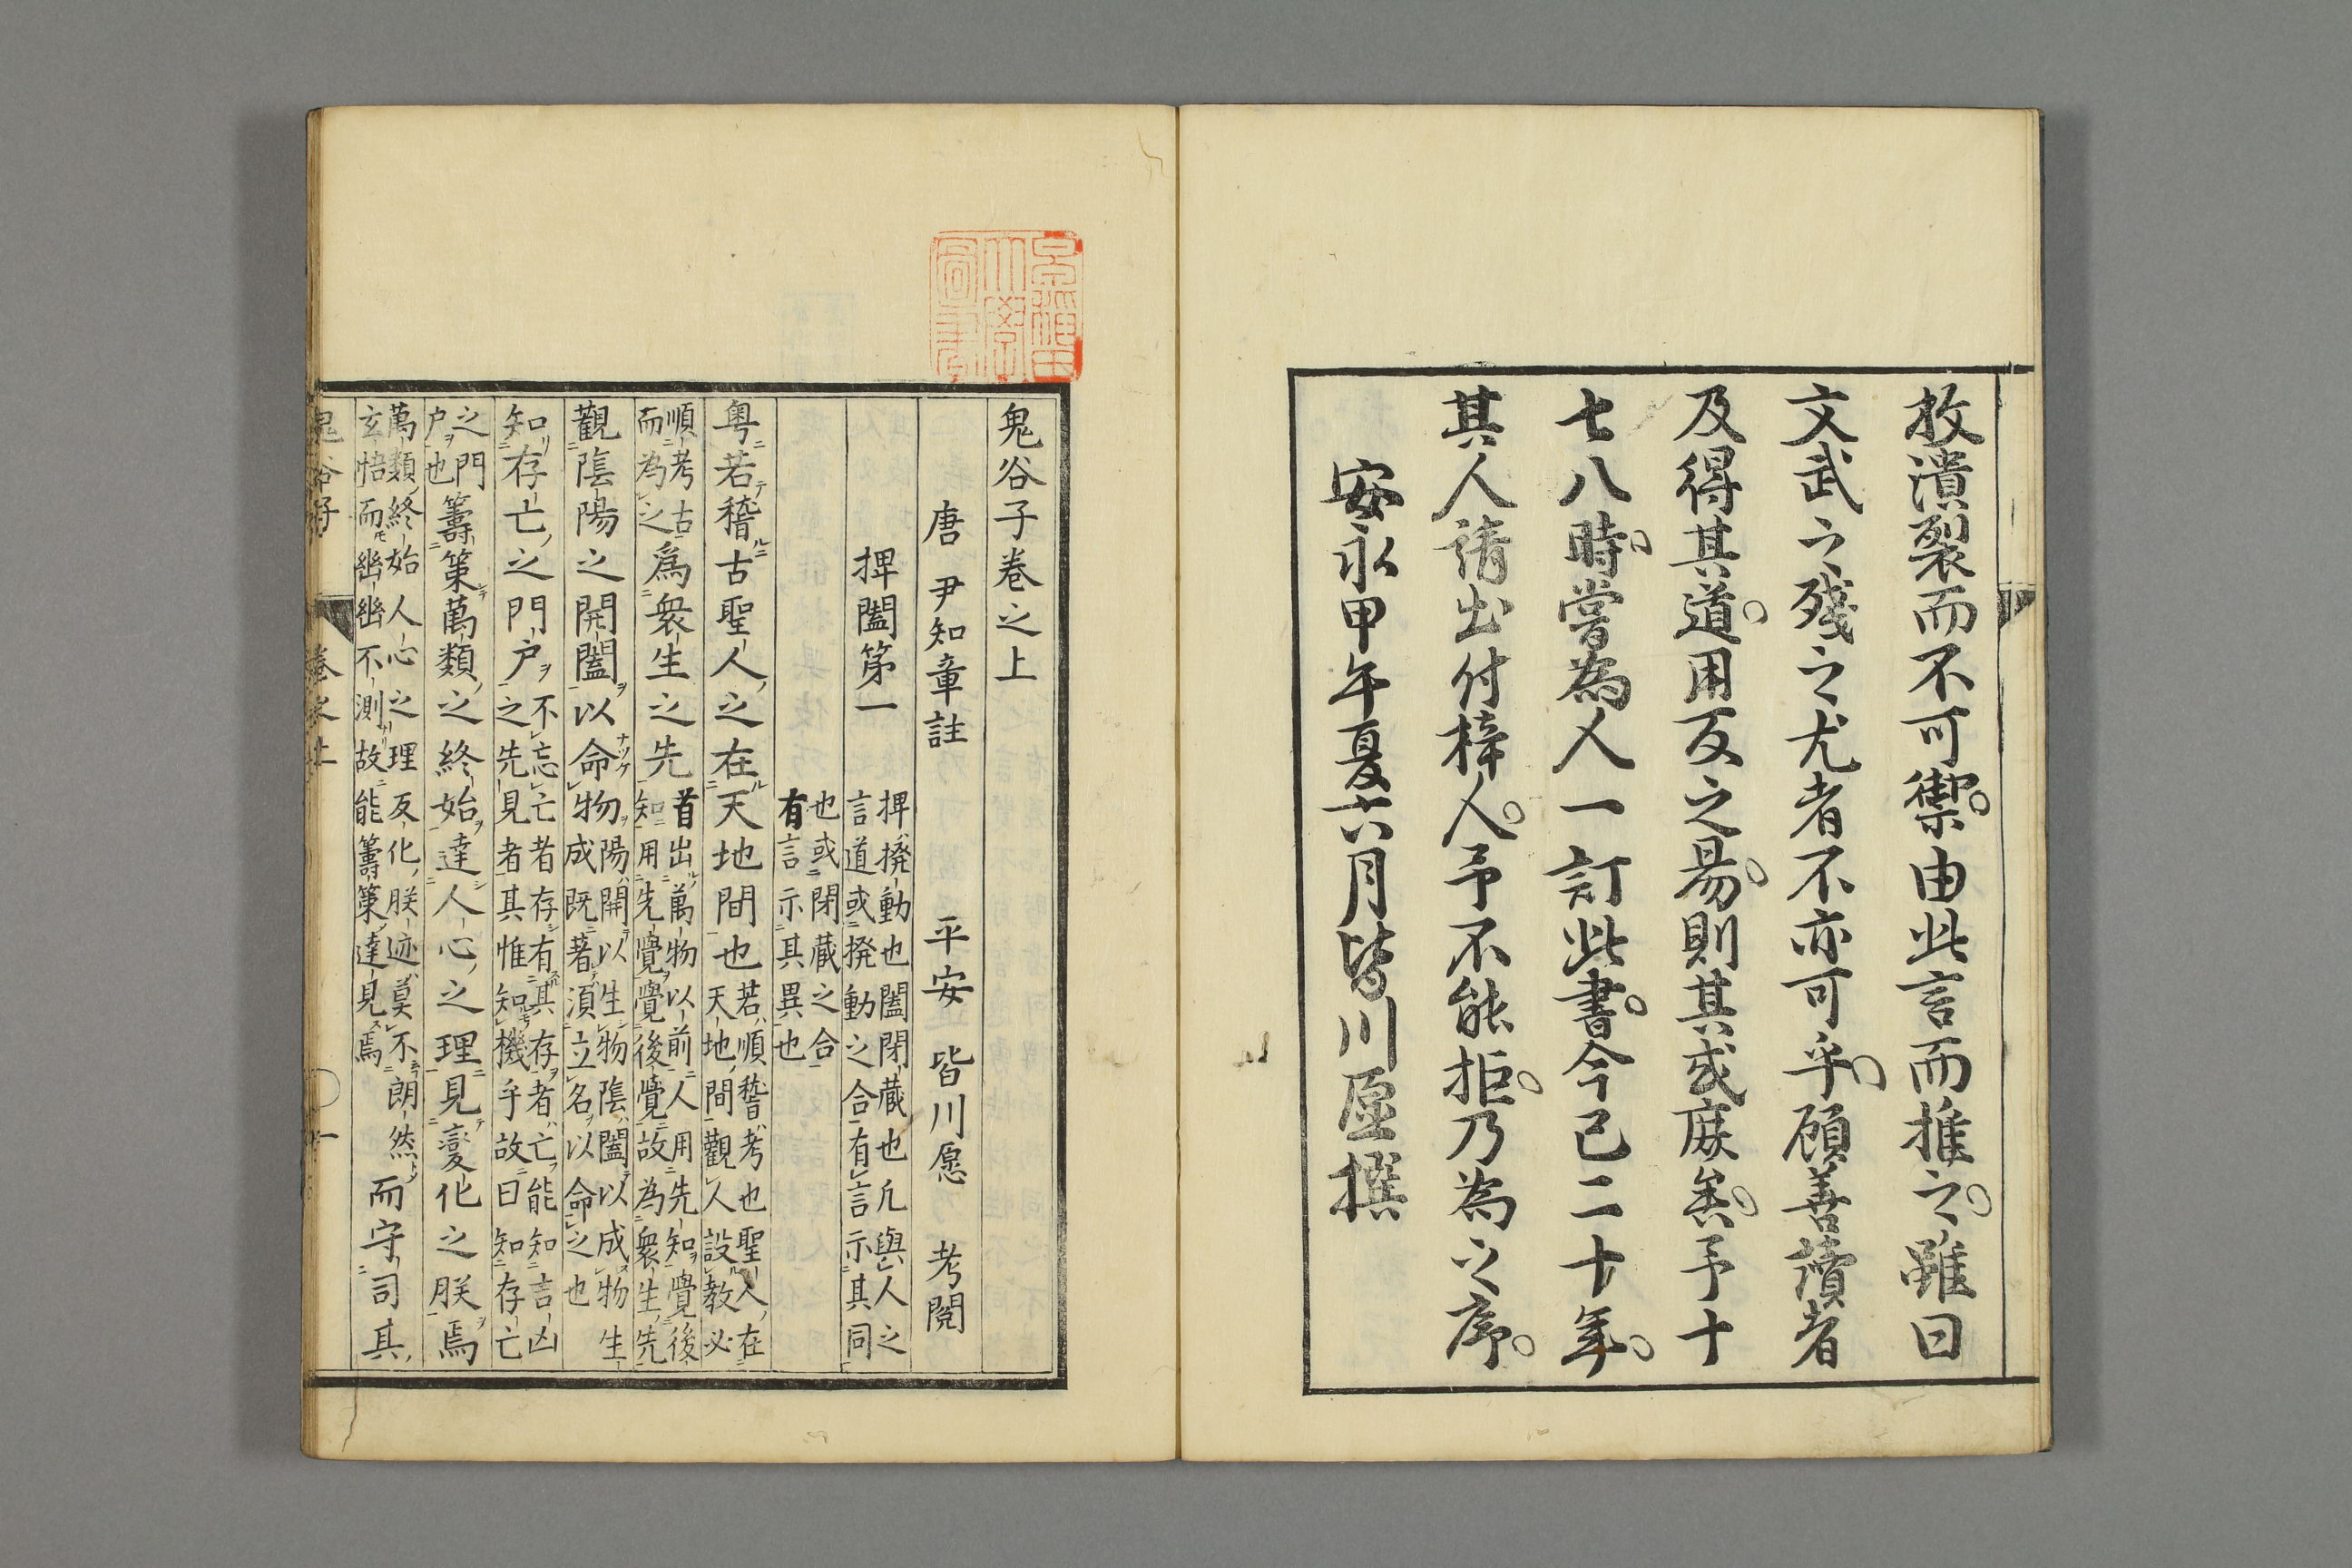 放潰裂而不可禦由此言而推之雖曰
文武之殘之尤者不亦可乎顧善讀者
及得其道用反之昜則其或庶矣予十
七八時嘗為人一訂此書今已二十年
其人請出付梓人予不能拒乃為之序
安永甲午夏六月皆川愿撰
鬼谷子卷之上
唐 尹知章註 平安 皆川愿 考閱
捭闔第一
捭撥動也闔閉藏也凡與人之
言道或撥動之合有言示其同
也或閉藏之合
有言示其異也
粤若稽古聖人之在天地間也
若順稽考也聖人在
天地間觀人設教必
順考古
而為之
爲衆生之先
首出萬物以前人用先知覺後
知用先覺覺後覺故為衆生先
觀陰陽之開闔以命物
陽開以生物陰闔以成物生
成既著湏立名以命之也
知存亡之門户
不忘亡者存有其存者亡能知吉凶
之先見者其惟知機乎故曰知存亡
之門
户也
籌策萬類之終始達人心之理見變化之朕焉
萬類終始人心之理反化朕迹莫不朗然
玄悟而幽幽不測故能籌策達見焉
而守司其
鬼谷子 卷之上 一